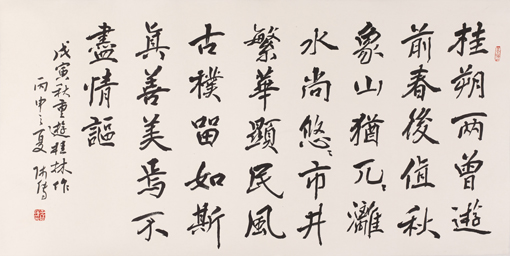 桂朔两曾遊
前春後值秋
象山猶兀兀灕
水尚悠悠市井
繁華顯民風
古樸留如斯
真善美焉不
盡情謳
戊寅秋重遊桂林作
丙申之夏